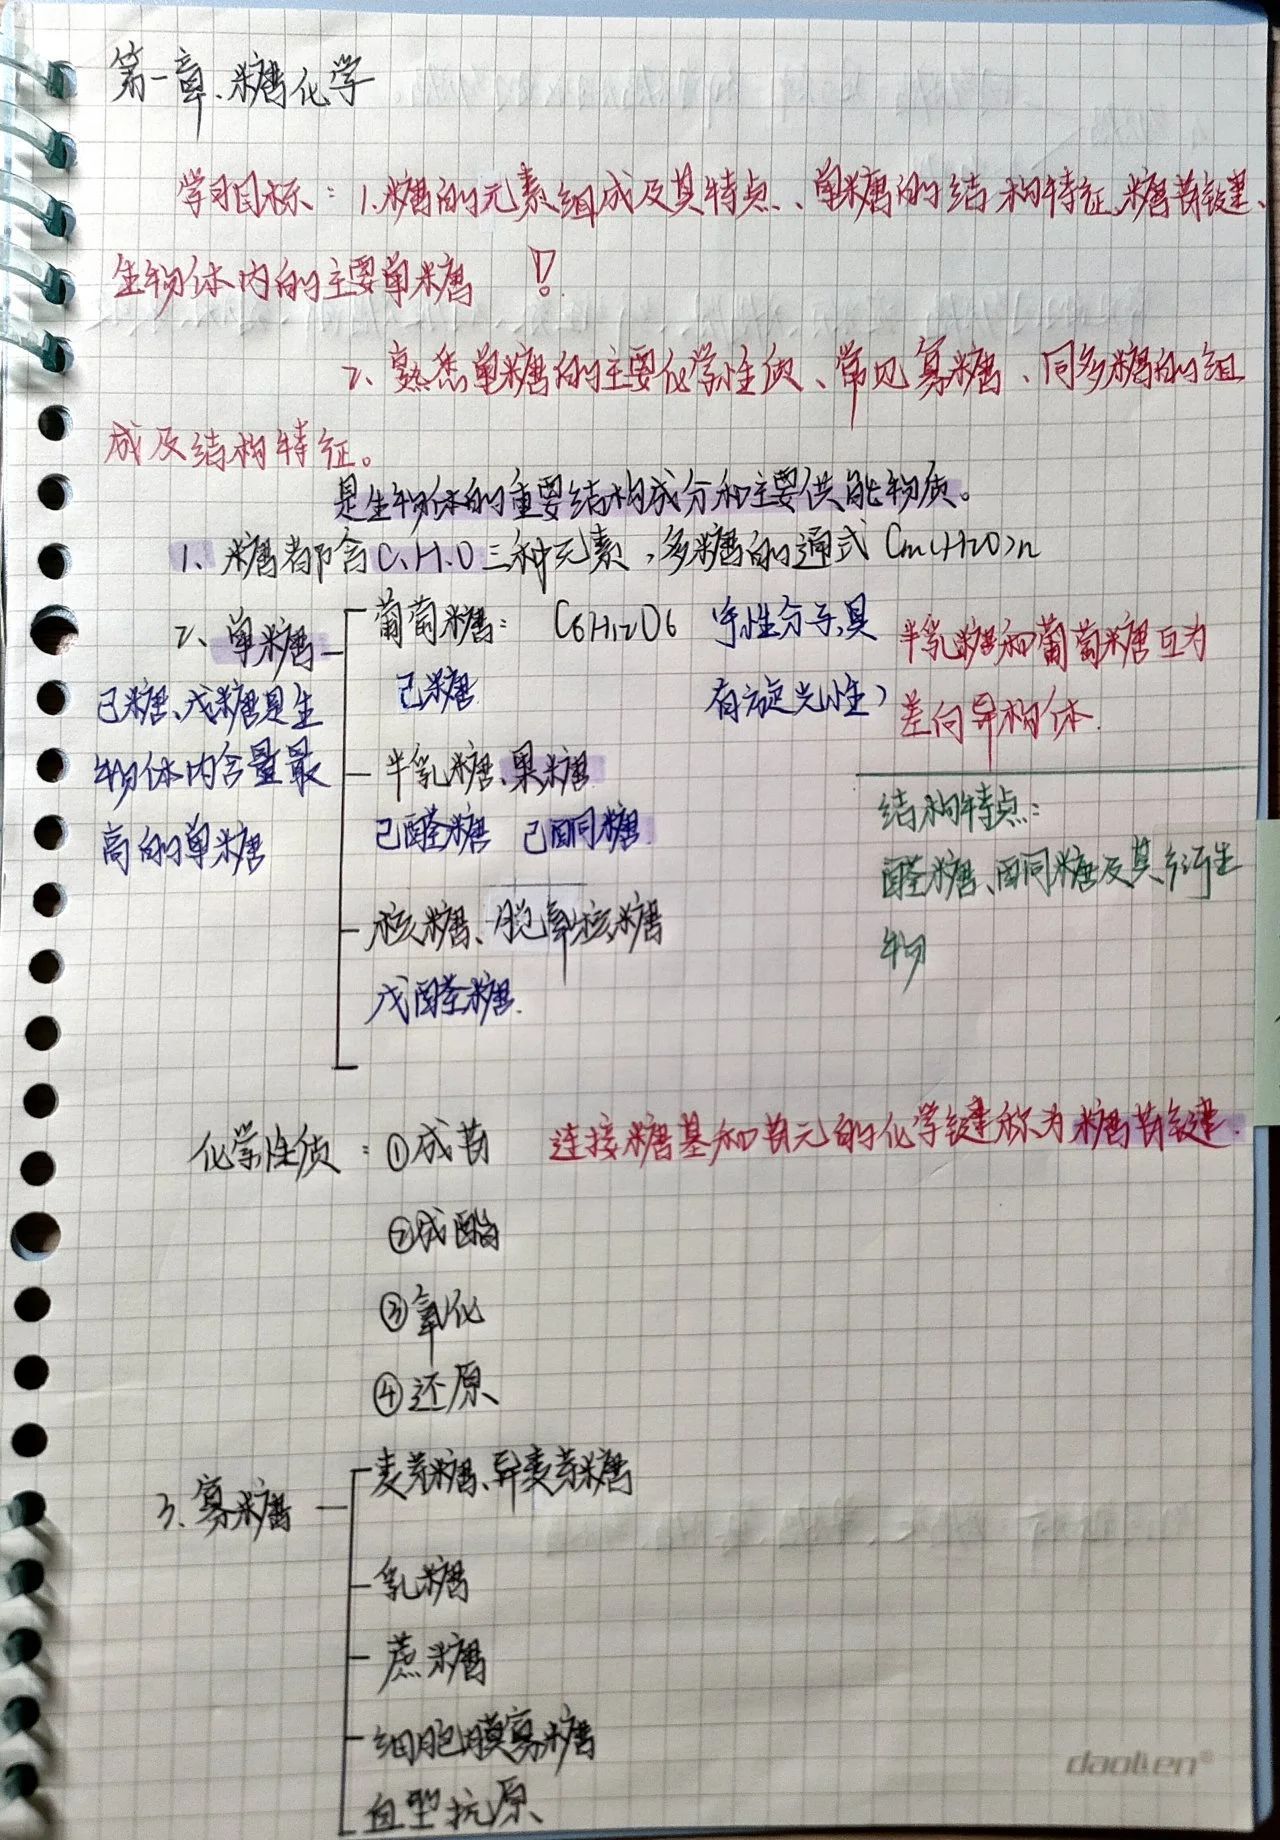 第一章.糖化学
学习目标：1.糖的元素组成及其特点、单糖的结构特征、糖苷键、
生物体内的主要单糖 !
2、熟悉单糖的主要化学性质、常见寡糖、同多糖的组
成及结构特征。
是生物体的重要结构成分和主要供能物质。
1、糖都含C、H、O三种元素，多糖的通式 Cm(H2O)n
2、单糖
己糖、戊糖是生
物体内含量最
高的单糖
葡萄糖： C6H12O6
己糖
手性分子，具
有旋光性）
半乳糖和葡萄糖互为
差向异构体.
半乳糖、果糖
己醛糖 己酮糖
结构特点：
醛糖、酮糖及其衍生
物
核糖、脱氧核糖
戊醛糖.
化学性质：①成苷 连接糖基和苷元的化学键称为糖苷键.
②成酯
③氧化
④还原
3、寡糖
麦芽糖、异麦芽糖
乳糖
蔗糖
细胞膜寡糖
血型抗原
daolen®